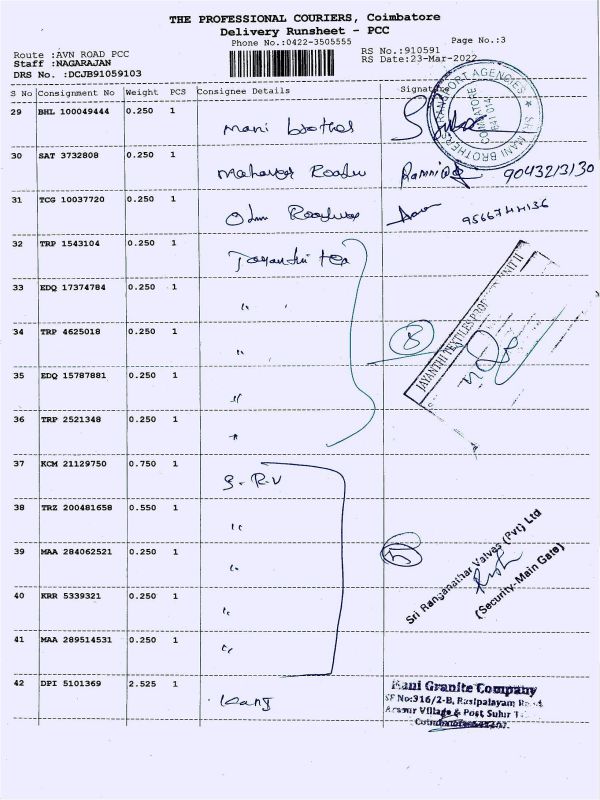 THE PROFESSIONAL COURIERS, Coimbatore
Delivery Runsheet - PCC
Phone No.:0422-3505555
Page No.:3
Route :AVN ROAD PCC
RS No.:910591
Staff :NAGARAJAN
RS Date:23-Mar-2022
DRS No. :DCJB91059103
S No Consignment No Weight PCS Consignee Details Signature
29 BHL 100049444 0.250 1 Mani brothers
30 SAT 3732808 0.250 1 Roadw 9043213130
31 TCG 10037720 0.250 1 Roadways
32 TRP 1543104 0.250 1 Jayanthi tex
33 EDQ 17374784 0.250 1 "
34 TRP 4625018 0.250 1 "
35 EDQ 15787881 0.250 1 "
36 TRP 2521348 0.250 1 "
37 KCM 21129750 0.750 1 S.R.V
38 TRZ 200481658 0.550 1 "
39 MAA 284062521 0.250 1 "
40 KRR 5339321 0.250 1 "
41 MAA 289514531 0.250 1 "
42 DPI 5101369 2.525 1
TRANSPORT AGENCIES
SRI MANI BROTHERS
COIMBATORE
5
JAYANTHI TEXTILES UNIT II
5
Sri Ranganathar Valves (Pvt) Ltd
(Security-Main Gate)
Mani Granite Company
SF No:316/2-B, Rasipalayam
Village & Post,